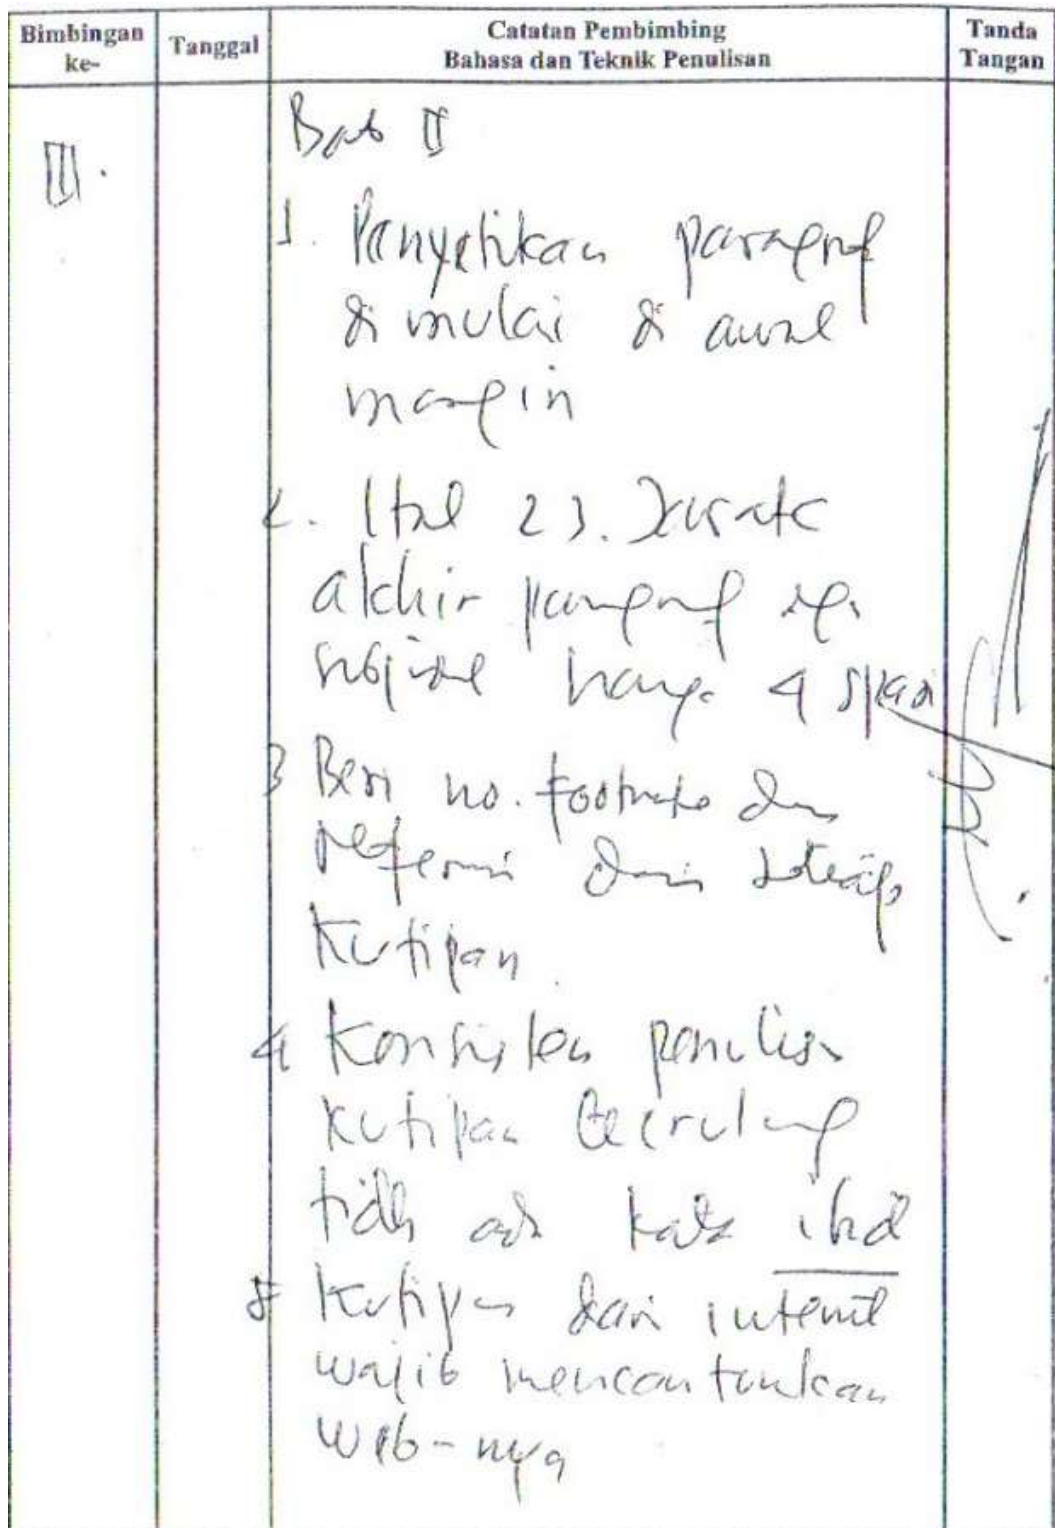 Bimbingan ke-
Tanggal
Catatan Pembimbing
Bahasa dan Teknik Penulisan
Tanda Tangan
III.
Bab II
1. Pengetikan paragraf
di mulai di awal
margin
2. Hal 23. Jarak
akhir paragraf dg.
subjudul hanya 4 spasi
3 Beri no. footnote dan
referensi dari setiap
kutipan.
4 Konsisten penulisan
kutipan berulang
tidk ada kata ibid
5 Kutipan dari internet
wajib mencantumkan
web-nya